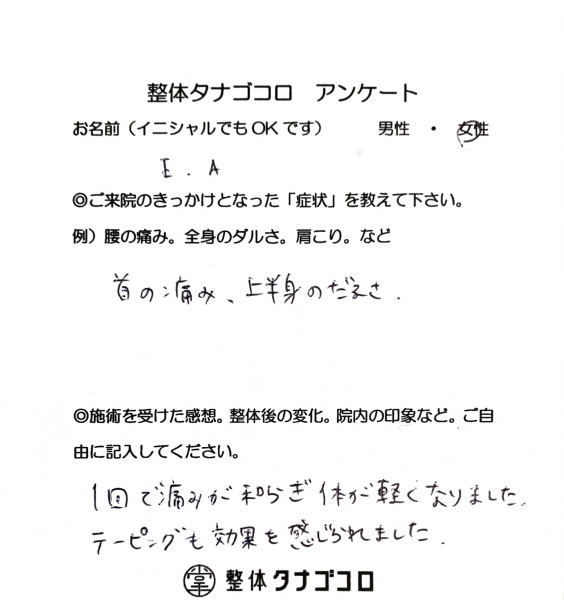 整体タナゴコロ　アンケート
お名前（イニシャルでもOKです）　　男性　・　女性
E . A
◎ご来院のきっかけとなった「症状」を教えて下さい。
例）腰の痛み。全身のダルさ。肩こり。など
首の痛み、上半身のだるさ.
◎施術を受けた感想。整体後の変化。院内の印象など。ご自
由に記入してください。
1回で痛みが和らぎ体が軽くなりました.
テーピングも効果を感じられました.
整体タナゴコロ